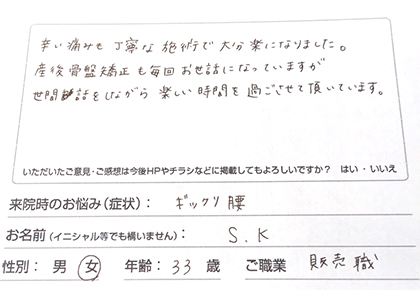 辛い痛みも丁寧な施術で大分楽になりました。
産後骨盤矯正も毎回お世話になっていますが
世間話をしながら楽しい時間を過ごさせて頂いています。
いただいたご意見・ご感想は今後HPやチラシなどに掲載してもよろしいですか? はい・いいえ
来院時のお悩み(症状): ギックリ腰
お名前(イニシャル等でも構いません): S.K
性別: 男 女 年齢: 33 歳 ご職業 販売職